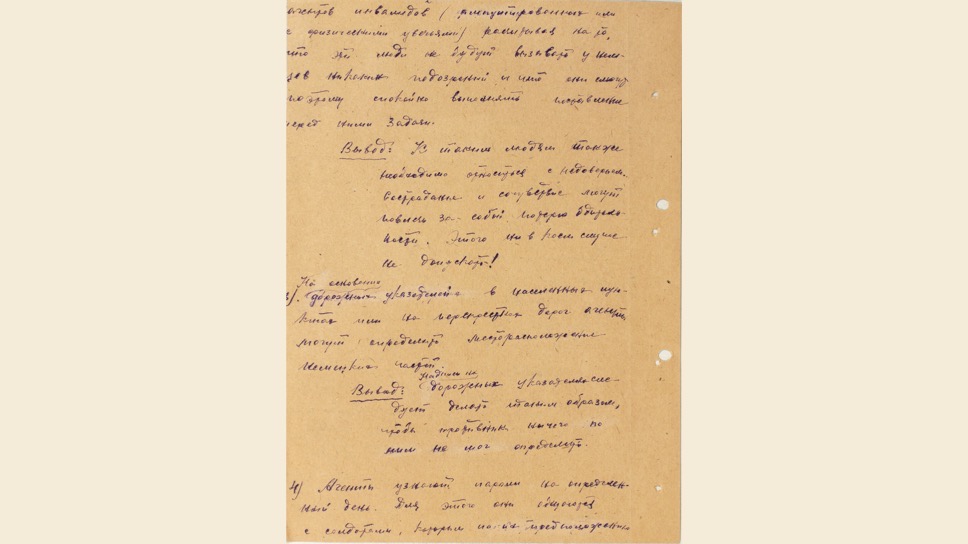 агентов инвалидов (ампутированных или
с физическими увечьями) рассчитывая на то,
что эти люди не будут вызывать у нем-
цев никаких подозрений и что они смогут
поэтому спокойно выполнять поставленные
перед ними задачи.
Вывод: К таким людям также
необходимо относиться с недоверием.
Сострадание и сочувствие могут
повлечь за собой потерю бдитель-
ности. Этого ни в коем случае
не допускать!
На основании
3). дорожных указателей в населенных пун-
ктах или на перекрестках дорог агенты
могут определить месторасположение
немецких частей.
Надписи на
Вывод: дорожных указателях сле-
дует делать таким образом,
чтобы противник ничего по
ним не мог определить.
4) Агенты узнают пароли на определен-
ный день. Для этого они общаются
с солдатами, которым